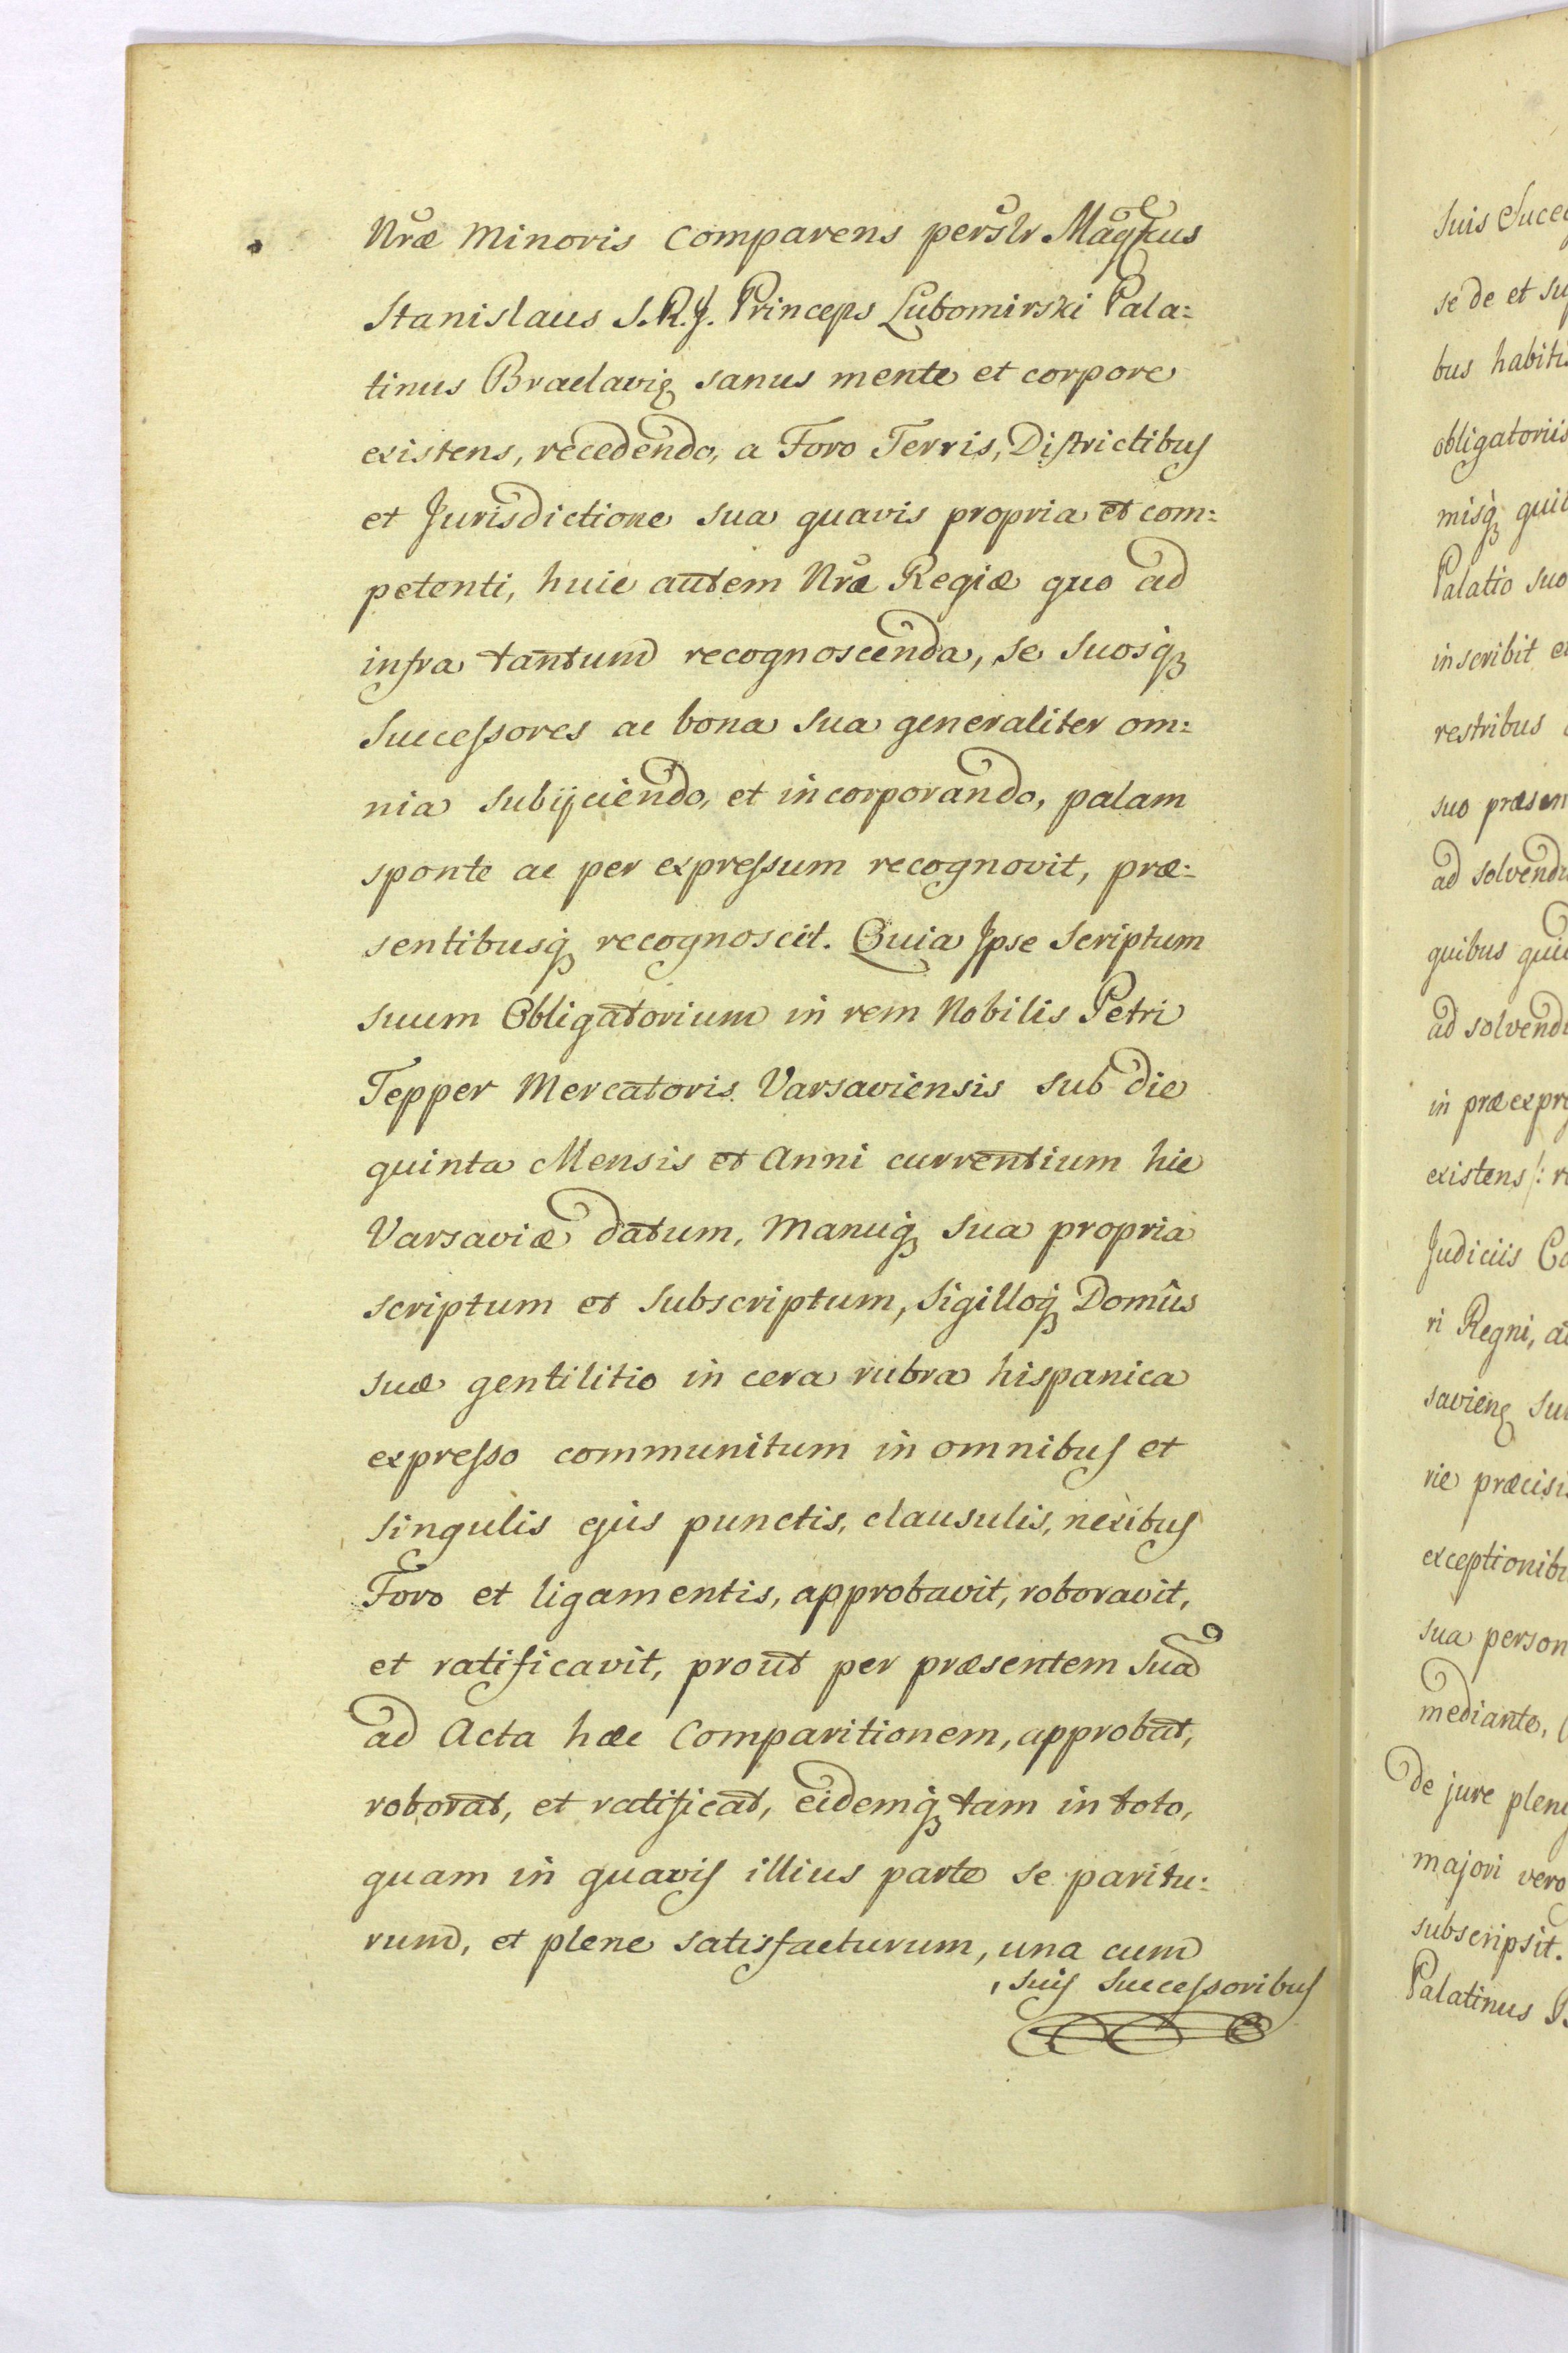 Nræ Minoris Comparens perslr Magcus
Stanislaus S.R.J. Princeps Lubomirski Pala=
tinus Braclaviæ sanus mente et corpore
existens, recedendo, a Foro Terris, Districtibus
et Jurisdictione sua quavis propria et com=
petenti, huic autem Nræ Regiæ quo ad
infra tantum recognoscenda, se suosq3
Successores ac bona sua generaliter om=
nia subijciendo, et incorporando, palam
sponte ac per expressum recognovit, præ=
sentibusq3 recognoscit. Quia Jpse Scriptum
suum Obligatorium in rem Nobilis Petri
Tepper Mercatoris Varsaviensis sub die
quinta Mensis et Anni currentium hic
Varsaviæ datum, Manuq3 sua propria
scriptum et subscriptum, Sigilloq3 Domûs
suæ gentilitio in cera rubra hispanica
expresso communitum in omnibus et
singulis ejus punctis, clausulis, nexibus
Foro et ligamentis, approbavit, roboravit,
et ratificavit, prout per præsentem Suam
ad Acta hæc Comparitionem, approbat,
roborat, et ratificat, eidemq3 tam in toto,
quam in quavis illius parte se paritu=
rum, et plene satisfacturum, una cum
suis Successoribus
suis Succe
se de et su
bus habitis
obligatoriis
misq3 quit
Palatio suo
inscribit e
restribus
suo præsen
ad solvend
quibus qui
ad solvend
in præexpr
existens /: r
Judiciis Ca
ri Regni, a
savien
rie præcisi
exceptionib
sua person
mediante,
de jure plen
majori vero
subscripsit.
Palatinus B